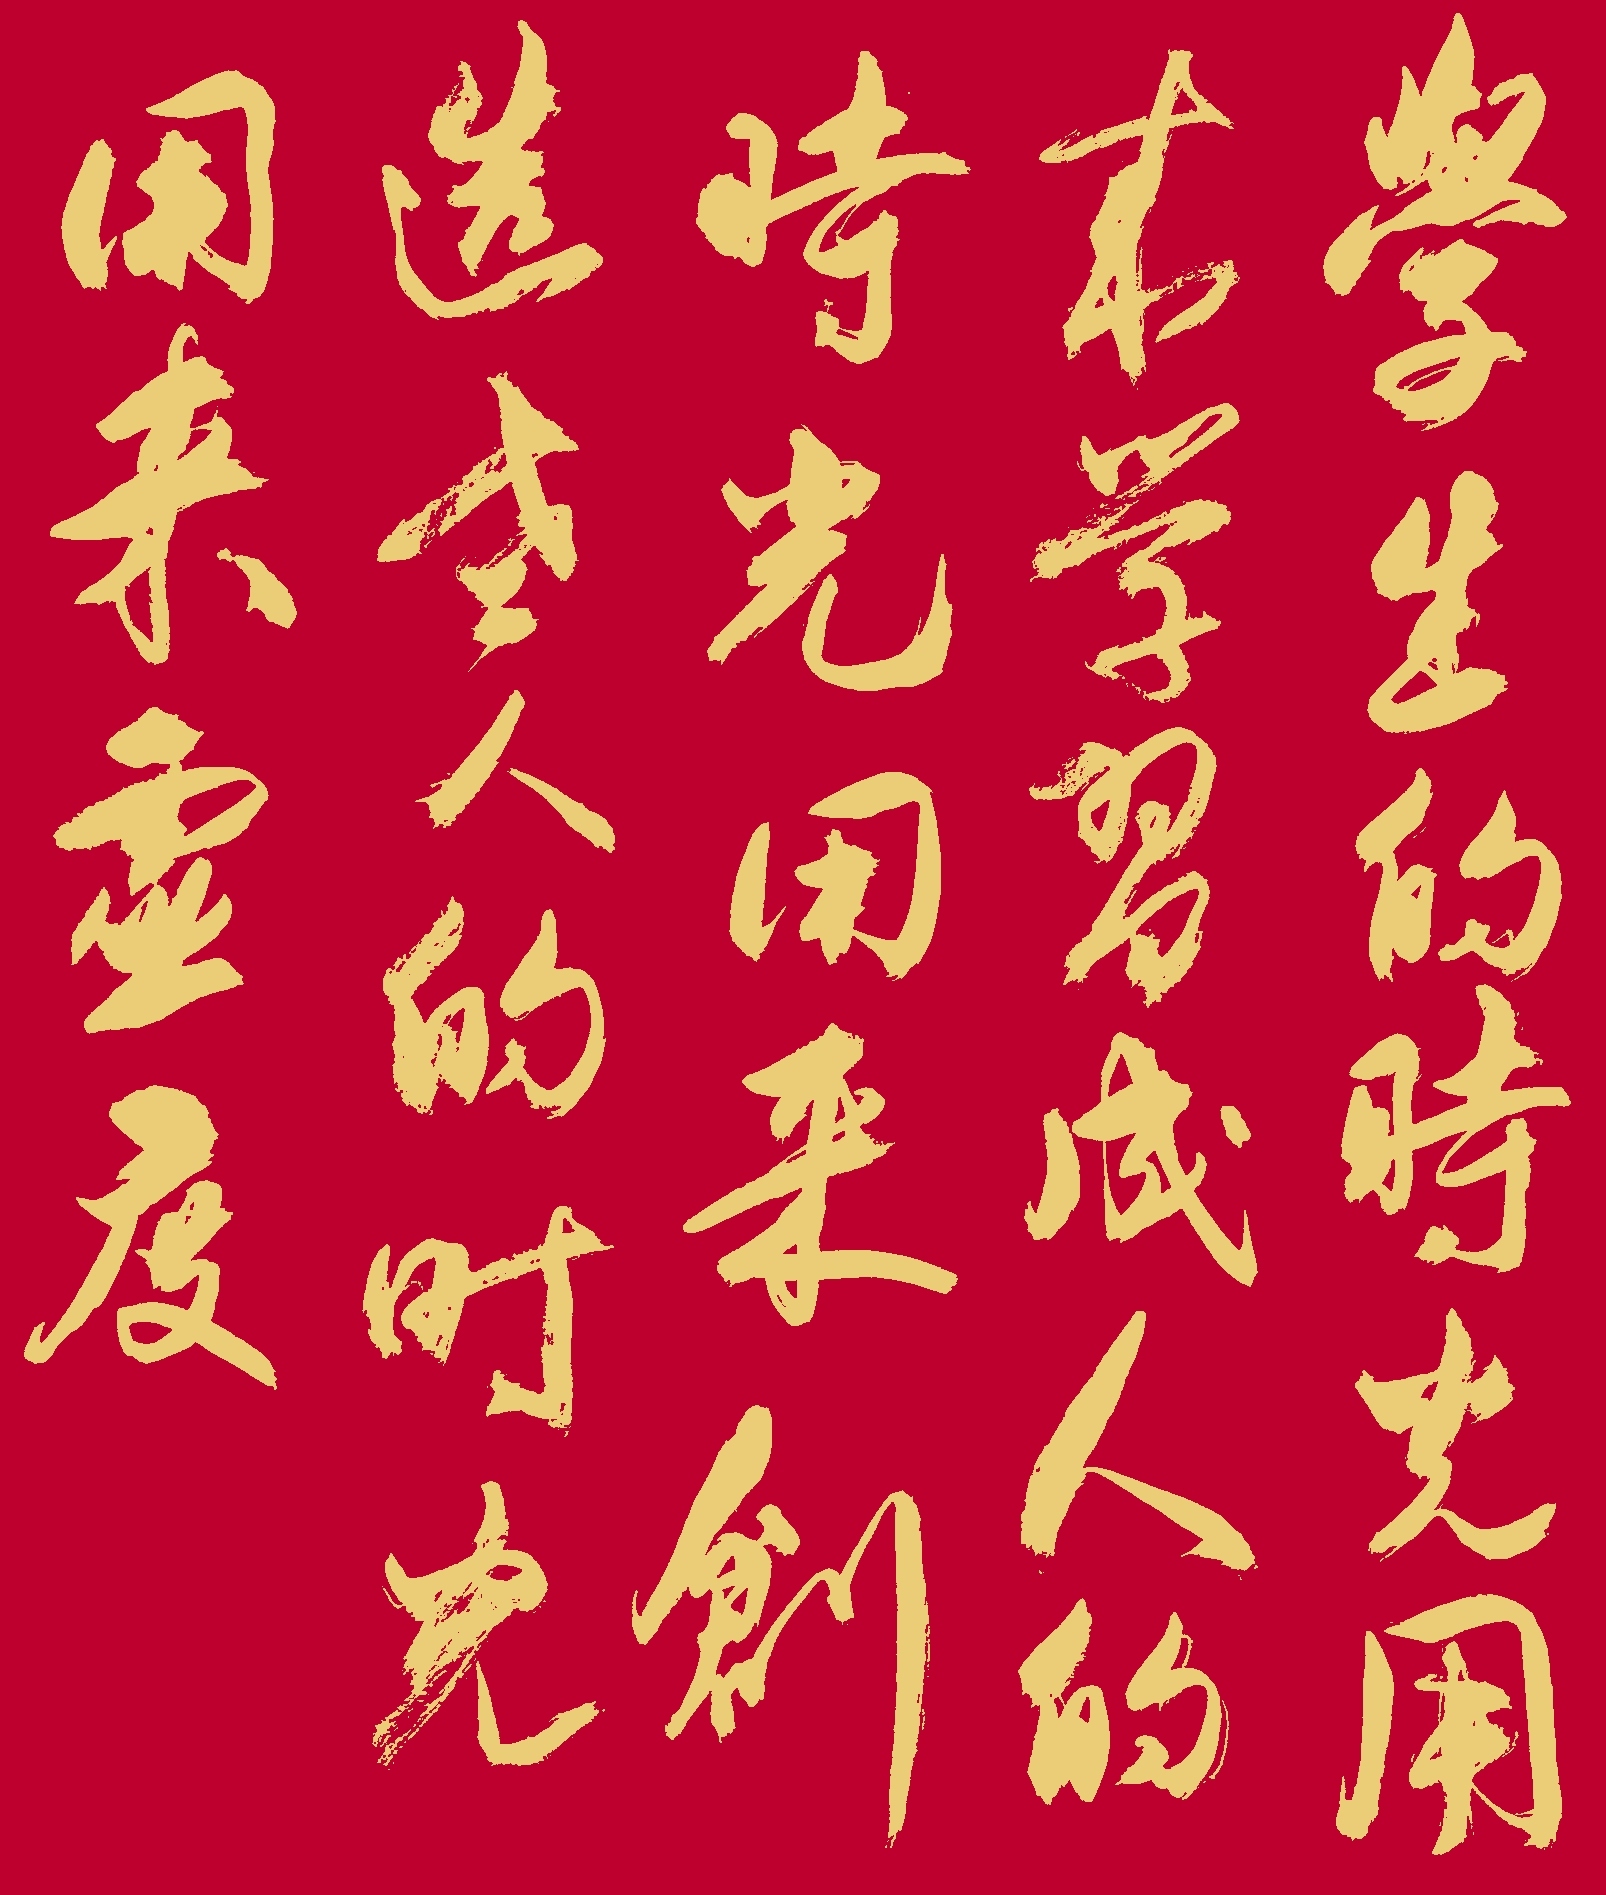 學生的時光用
来学習成人的
時光用来創
造老人的时光
用来虚度